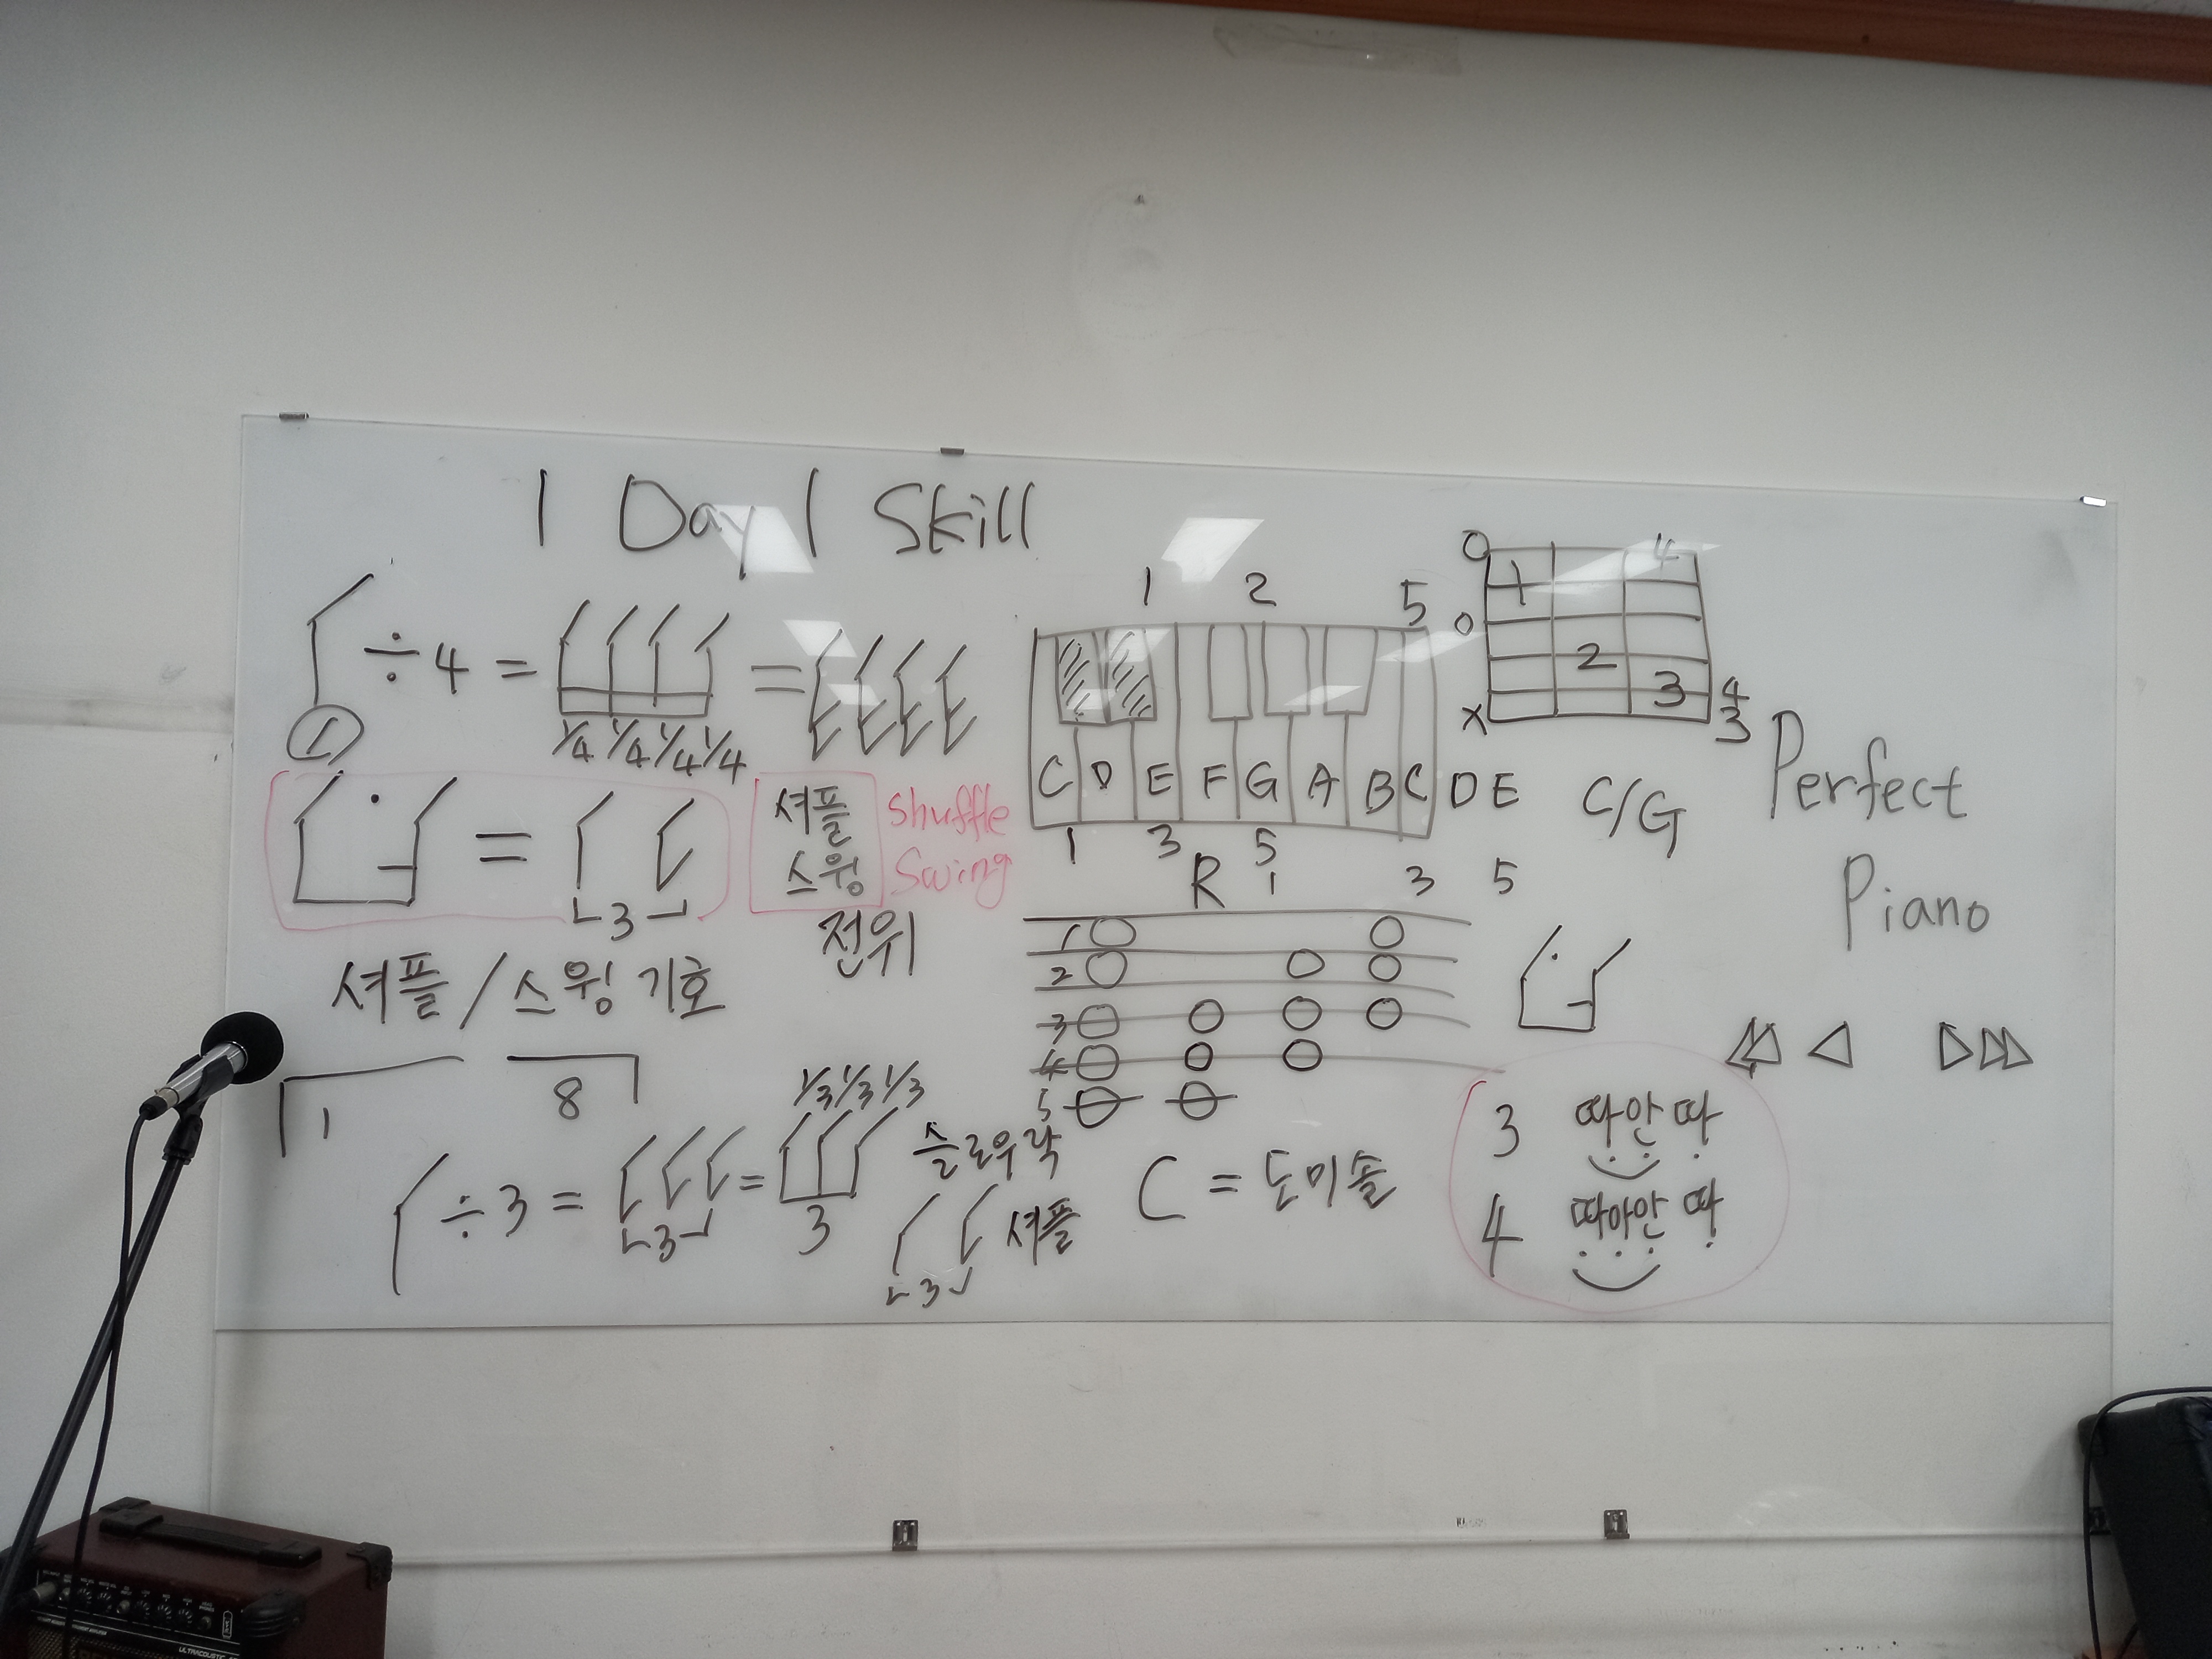 1 Day 1 Skill
÷ 4 = =
1
1/4 1/4 1/4 1/4
= 3
셔플 Shuffle
스윙 Swing
전위
셔플 / 스윙 기호
1 8
1/3 1/3 1/3
÷ 3 = 3 = 3
슬로우락
3 셔플
1 2 5
C D E F G A B C D E
1 3 5
R 1 3 5
1
2
3
4
5
C = 도미솔
O 4
1
O
2
3 4
X 3
C/G
Perfect
Piano
3 따안 따
4 따아안 따
ULTRACOUSTIC